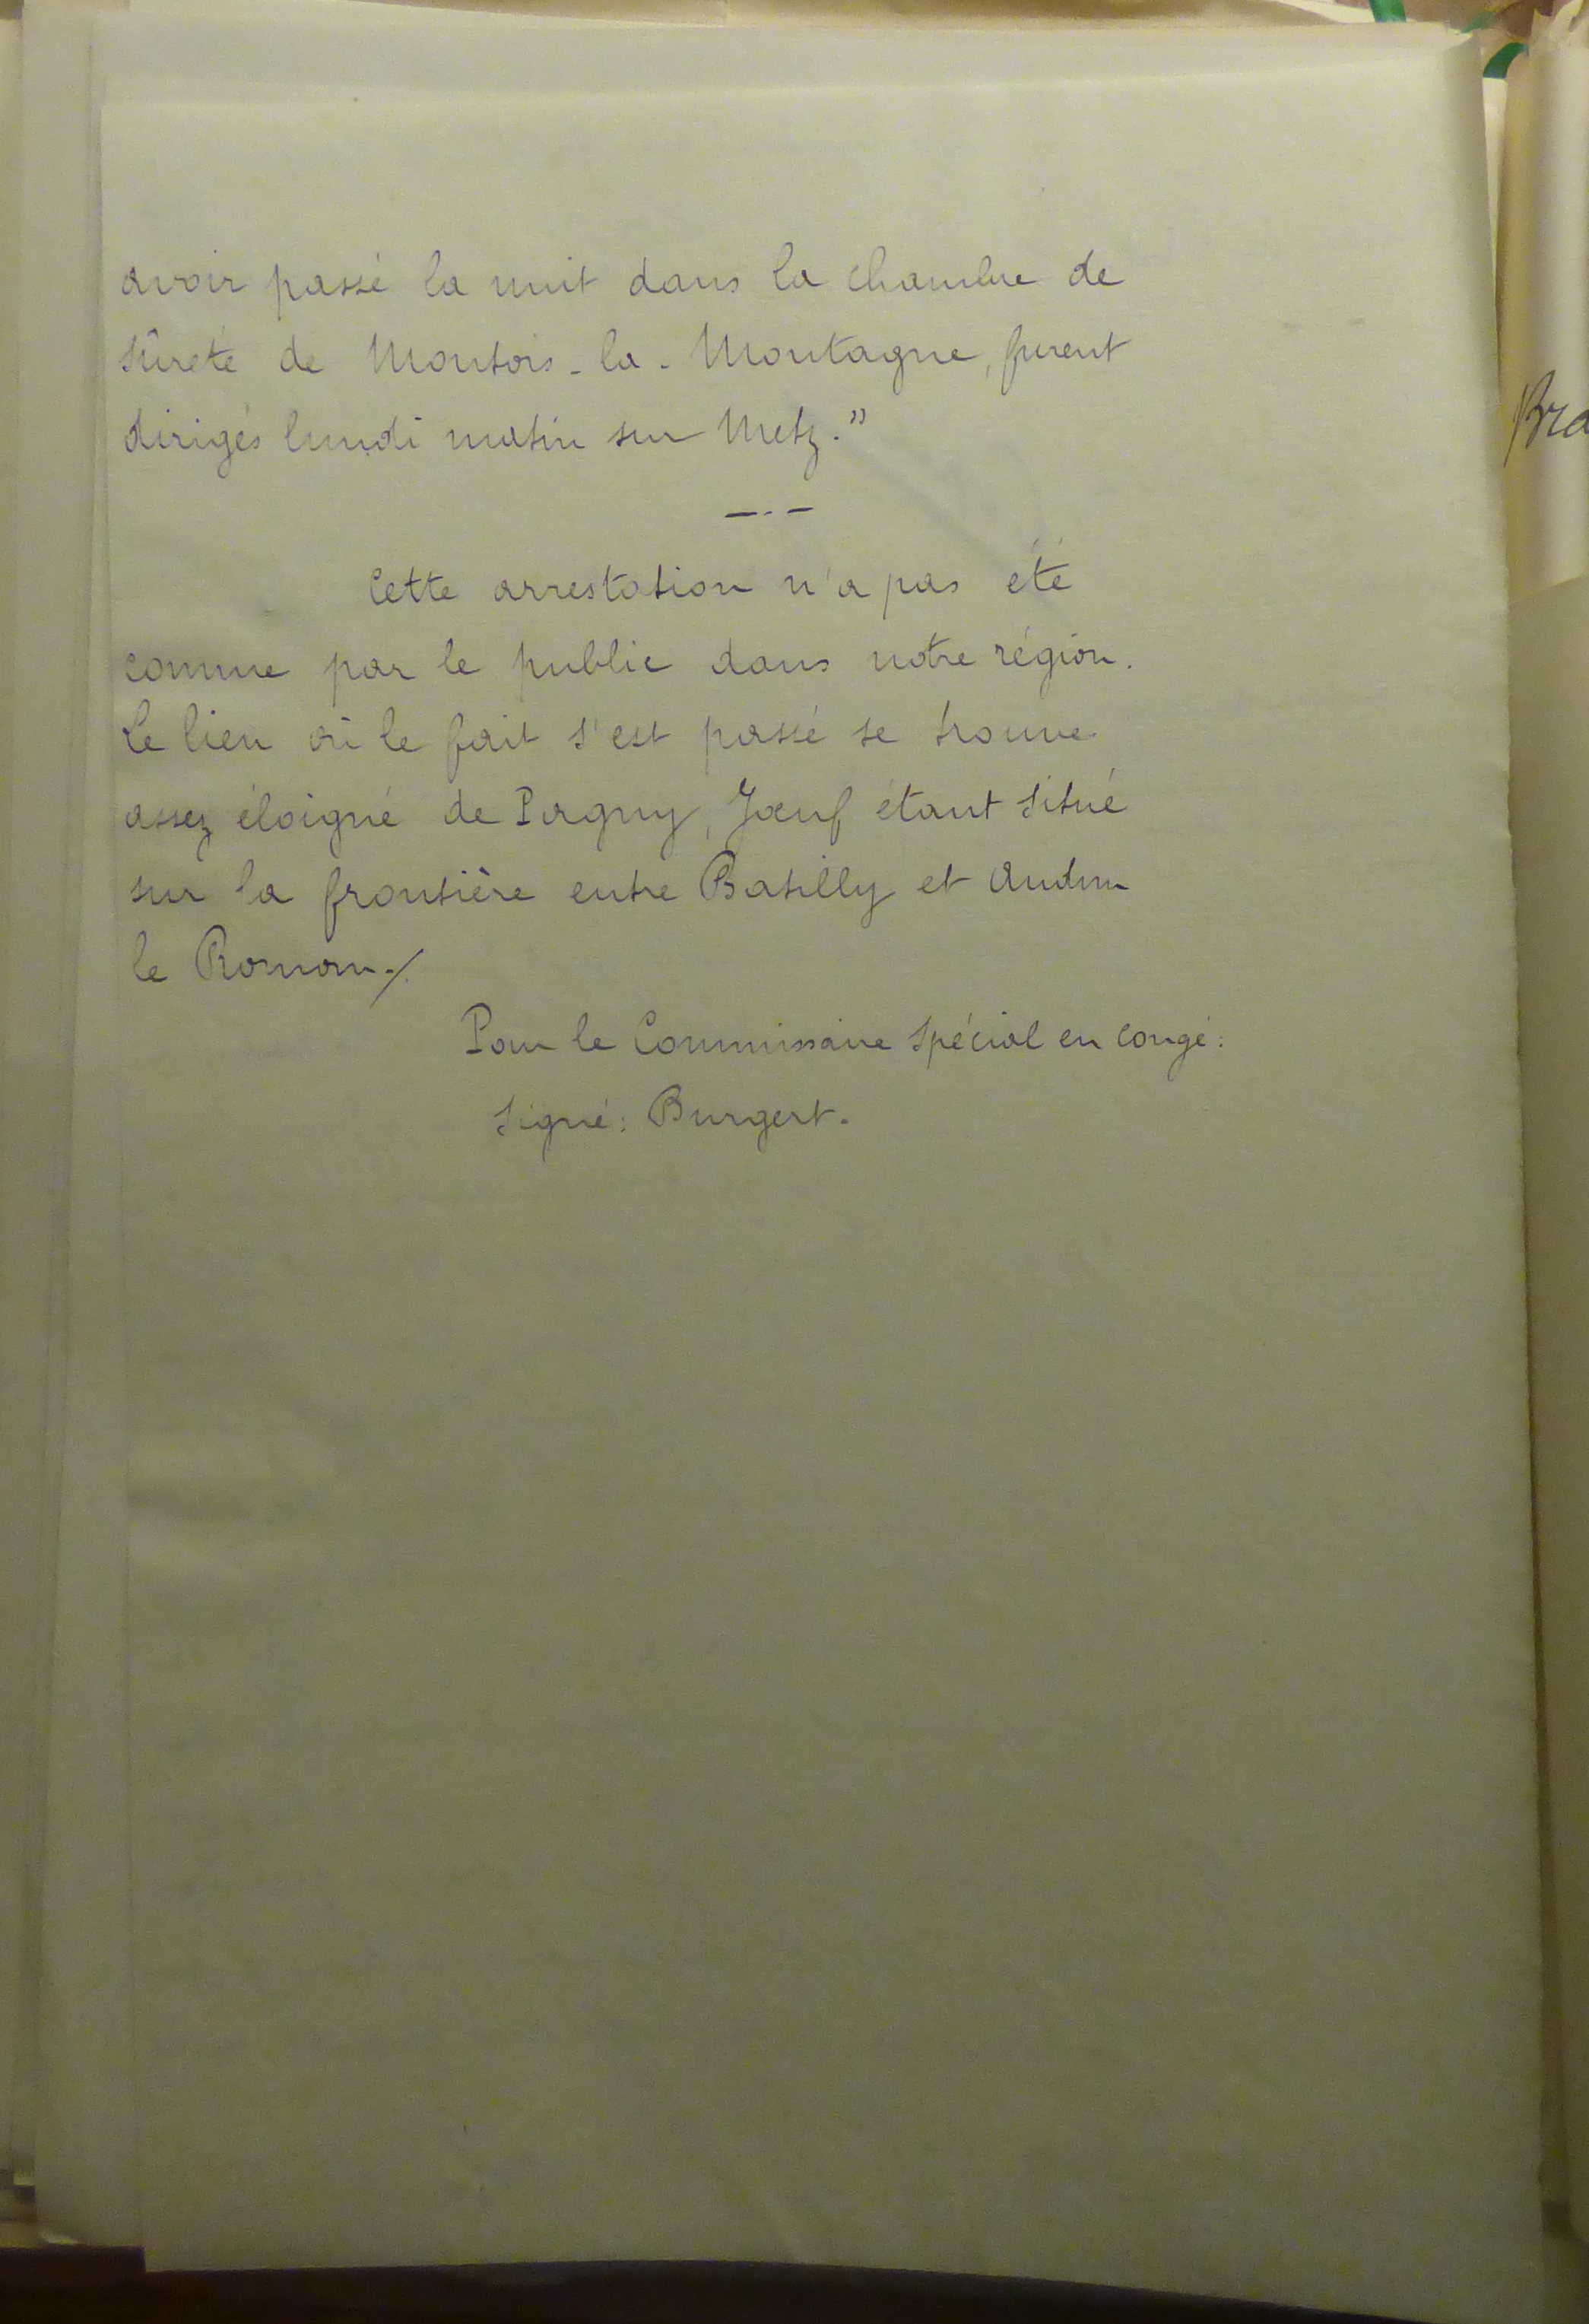 avoir passé la nuit dans la chambre de
sûreté de Montois-la-Montagne, furent
dirigés lundi matin sur Metz."
Cette arrestation n'a pas été
connue par le public dans notre région.
Le lieu où le fait s'est passé se trouve
assez éloigné de Pagny, Jœuf étant situé
sur la frontière entre Batilly et Audun
le Roman./.
Pour le Commissaire Spécial en congé:
Signé: Burgert.